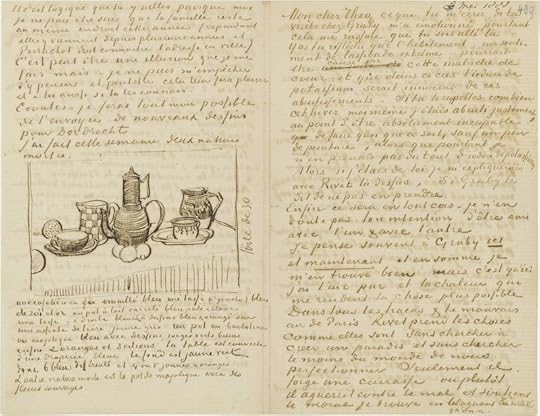 il est logique que tu y ailles puisque moi
je ne puis être sûr que la famille reste
au même endroit cette année cependant
elles y viennent depuis plusieurs années et
doit connaitre l'adresse en ville
C'est peut être une illusion que je me
fais mais je ne puis m'empêcher
d'y penser et peutetre cela leur fera plaisir
et à toi aussi si tu les connais
Ecoutes - je ferai tout mon possible
de t'envoyer de nouveaux dessins
pour Dordrecht
j'ai fait cette semaine deux natures
mortes.
toile de 30
une cafetière en fer emaillé bleu une tasse (à gauche) bleu
de roi et or un pot à lait carrelé bleu pale et blanc
une tasse - à droite blanche à dessins bleus orangé sur
une assiette de terre jaune gris un pot en barbotine
ou majolique bleu avec dessins rouges verts bruns
enfin 2 oranges et 3 citrons la table est couverte
d'une draperie bleue le fond est jaune vert
donc 6 bleus différents et 4 ou 5 jaunes orangés
L'autre nature morte est le pot de majolique avec des
fleurs sauvages
mai 1888
Mon cher Theo, ce que tu m'écris de ta
visite chez Gruby m'a émotionné pourtant
cela me rassure que tu sois allé là
As tu reflechi que l'hébêtement, un senti-
ment de lassitude extreme - pourrait
être cette maladie de
coeur et que dans ce cas l'iodure de
potassium serait innocent de ces
abrutissements. Cet hiver rappelles toi combien
moi même j'étais abruti justement
au point d'être absolument incapable
de faire quoi que ce soit, sauf un peu
de peinture, alors que pourtant je
n'en prenais pas du tout d'iodure de potassium
Alors si j'étais de toi je m'expliquerais
avec Rivet là dessus, si Gruby te
dit de n'en pas prendre.
Enfin ce sera en tout cas je n'en
doute pas ton intention d'être ami
avec l'un & avec l'autre
Je pense souvent à Gruby ici
et maintenant et en somme je
m'en trouve bien mais c'est qu'ici
j'ai l'air pur et la chaleur qui
me rendent la chose plus possible
Dans tous les tracas & le mauvais
air de Paris Rivet prend les choses
comme elles sont sans chercher à
créer un paradis et sans chercher
le moins du monde de nous
perfectionner Seulement il
forge une cuirasse ou plutôt
il aguerrit contre le mal et soutient
le moral je trouve en blaguant le mal
qu'on a